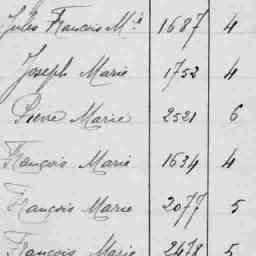 Jules François Mie 1687 4
Joseph Marie 1752 4
Pierre Marie 2521 6
François Marie 1634 4
François Marie 2077 5
François Marie 2478 5